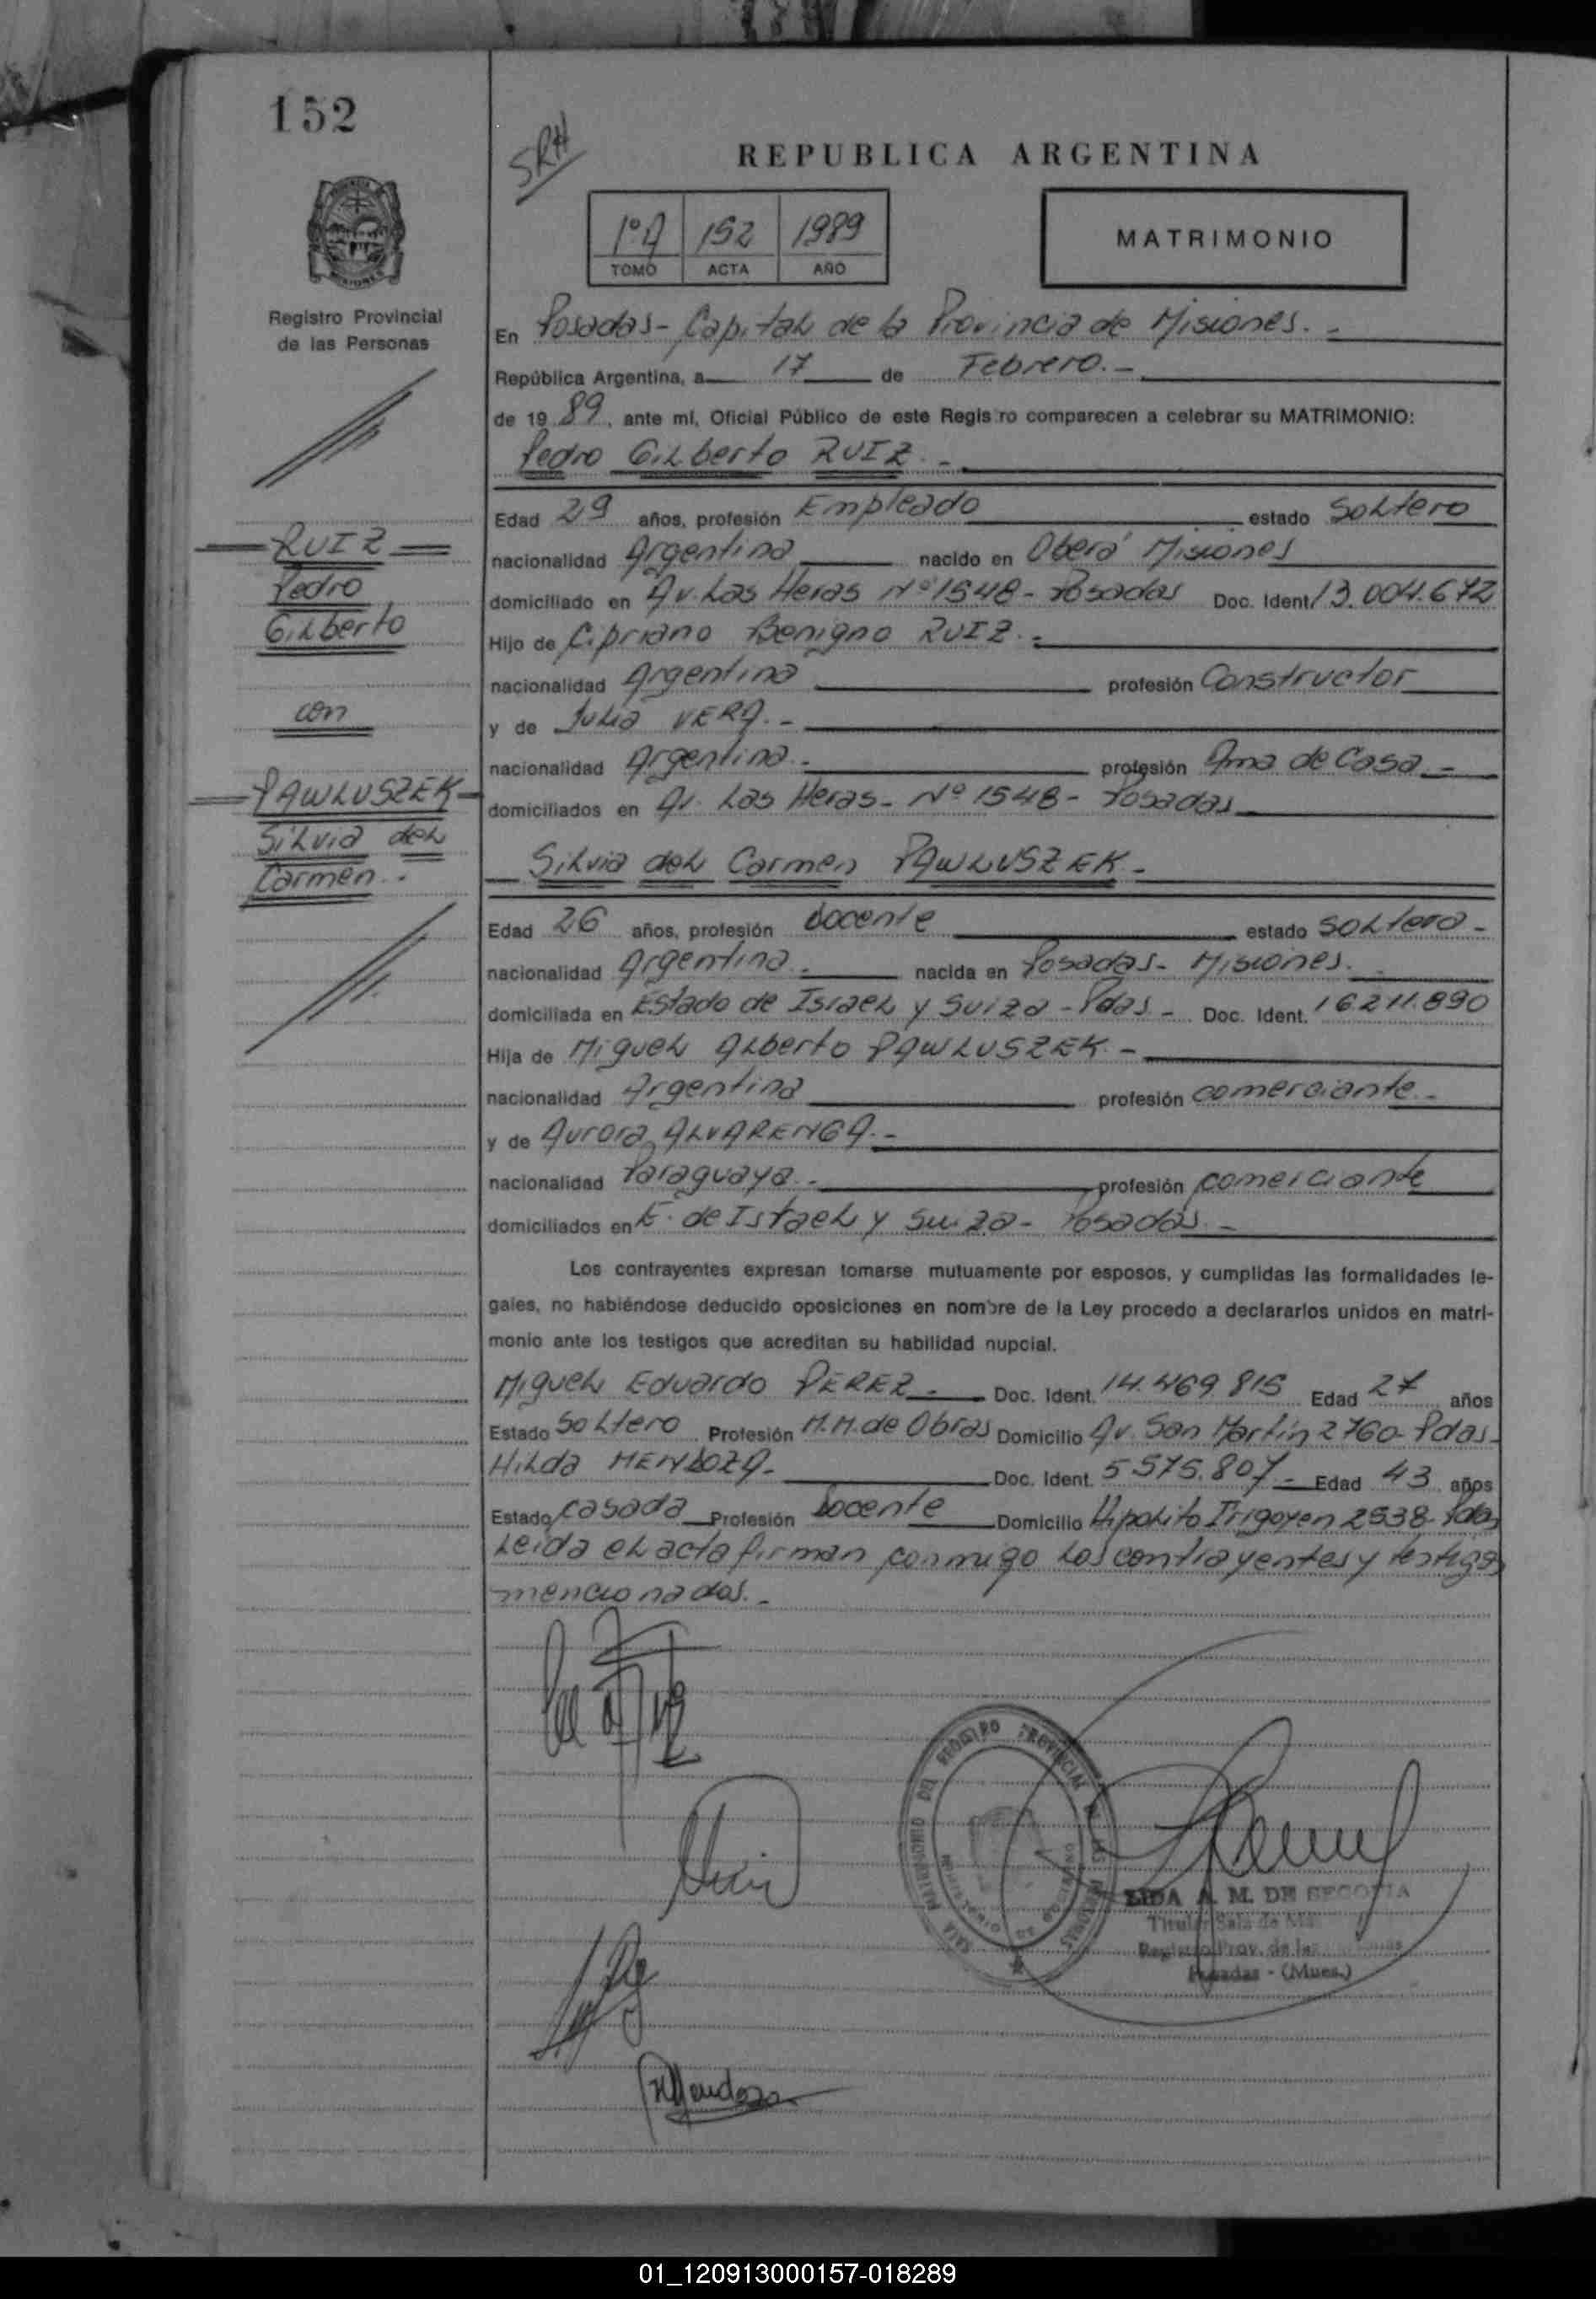 152
SRH
REPUBLICA ARGENTINA
1º A 152 1989
TOMO ACTA AÑO
MATRIMONIO
Registro Provincial
de las Personas
En Posadas - Capital de la Provincia de Misiones. -
República Argentina, a 17 de Febrero. -
de 19 89, ante mí, Oficial Público de este Regis ro comparecen a celebrar su MATRIMONIO:
Pedro Gilberto RUIZ. -
Edad 29 años, profesión Empleado estado Soltero
RUIZ
nacionalidad Argentina nacido en Oberá Misiones
Pedro
domiciliado en Av. Las Heras Nº 1548 - Posadas Doc. Ident. 13.004.672
Gilberto
Hijo de Cipriano Benigno RUIZ. -
nacionalidad Argentina profesión Constructor
con
y de Julia VERA. -
nacionalidad Argentina. - profesión Ama de Casa. -
PAWLUSZEK
domiciliados en Av. Las Heras - Nº 1548 - Posadas
Silvia del
Carmen. -
Silvia del Carmen PAWLUSZEK. -
Edad 26 años, profesión docente estado Soltera -
nacionalidad Argentina. - nacida en Posadas - Misiones. -
domiciliada en Estado de Israel y Suiza - Pdas. - Doc. Ident. 16.211.890
Hija de Miguel Alberto PAWLUSZEK. -
nacionalidad Argentina profesión comerciante. -
y de Aurora ALVARENGA. -
nacionalidad Paraguaya. - profesión comerciante
domiciliados en E. de Israel y Suiza - Posadas. -
Los contrayentes expresan tomarse mutuamente por esposos, y cumplidas las formalidades le-
gales, no habiéndose deducido oposiciones en nombre de la Ley procedo a declararlos unidos en matri-
monio ante los testigos que acreditan su habilidad nupcial.
Miguel Eduardo PEREZ. - Doc. Ident. 14.469.815 Edad 27 años
Estado Soltero Profesión M.M. de Obras Domicilio Av. San Martín 2760 - Pdas -
Hilda MENDOZA. - Doc. Ident. 5.575.807 - Edad 43 años
Estado casada Profesión Docente Domicilio Hipolito Irigoyen 2538 - Pdas
Leída el acta firman conmigo los contrayentes y testigos
mencionados. -
SALA MATRIMONIO DEL REGISTRO PROVINCIAL DE LAS PERSONAS
LIDA A. M. DE SEGOVIA
Titular Sala de
Registro Prov. de las
Posadas - (Mnes.)
HMendoza
01_120913000157-018289